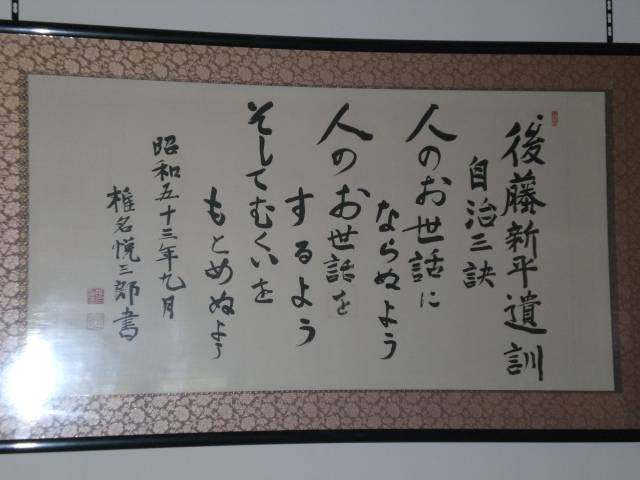 後藤新平遺訓
自治三訣
人のお世話に
ならぬよう
人のお世話を
するよう
そしてむくいを
もとめぬよう
昭和五十三年九月
椎名悦三郎書